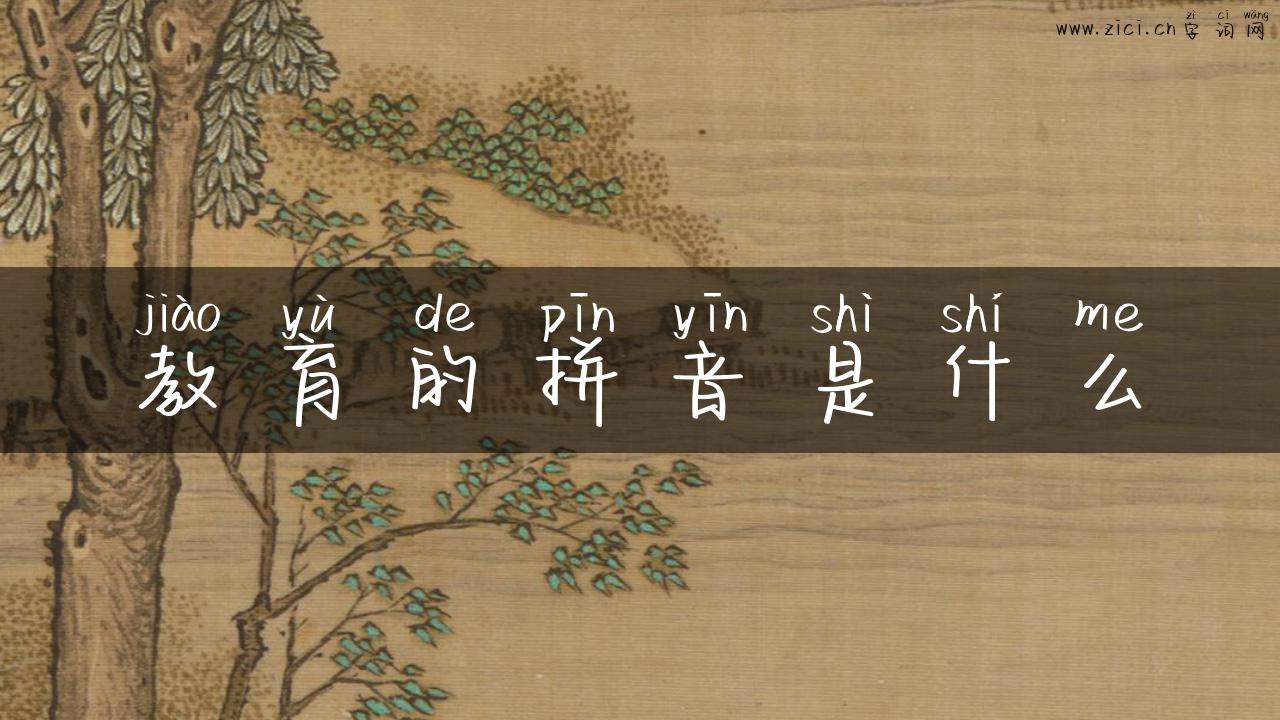 zì cí wǎng
www.zici.cn 字词网
jiào yù de pīn yīn shì shí me
教育的拼音是什么